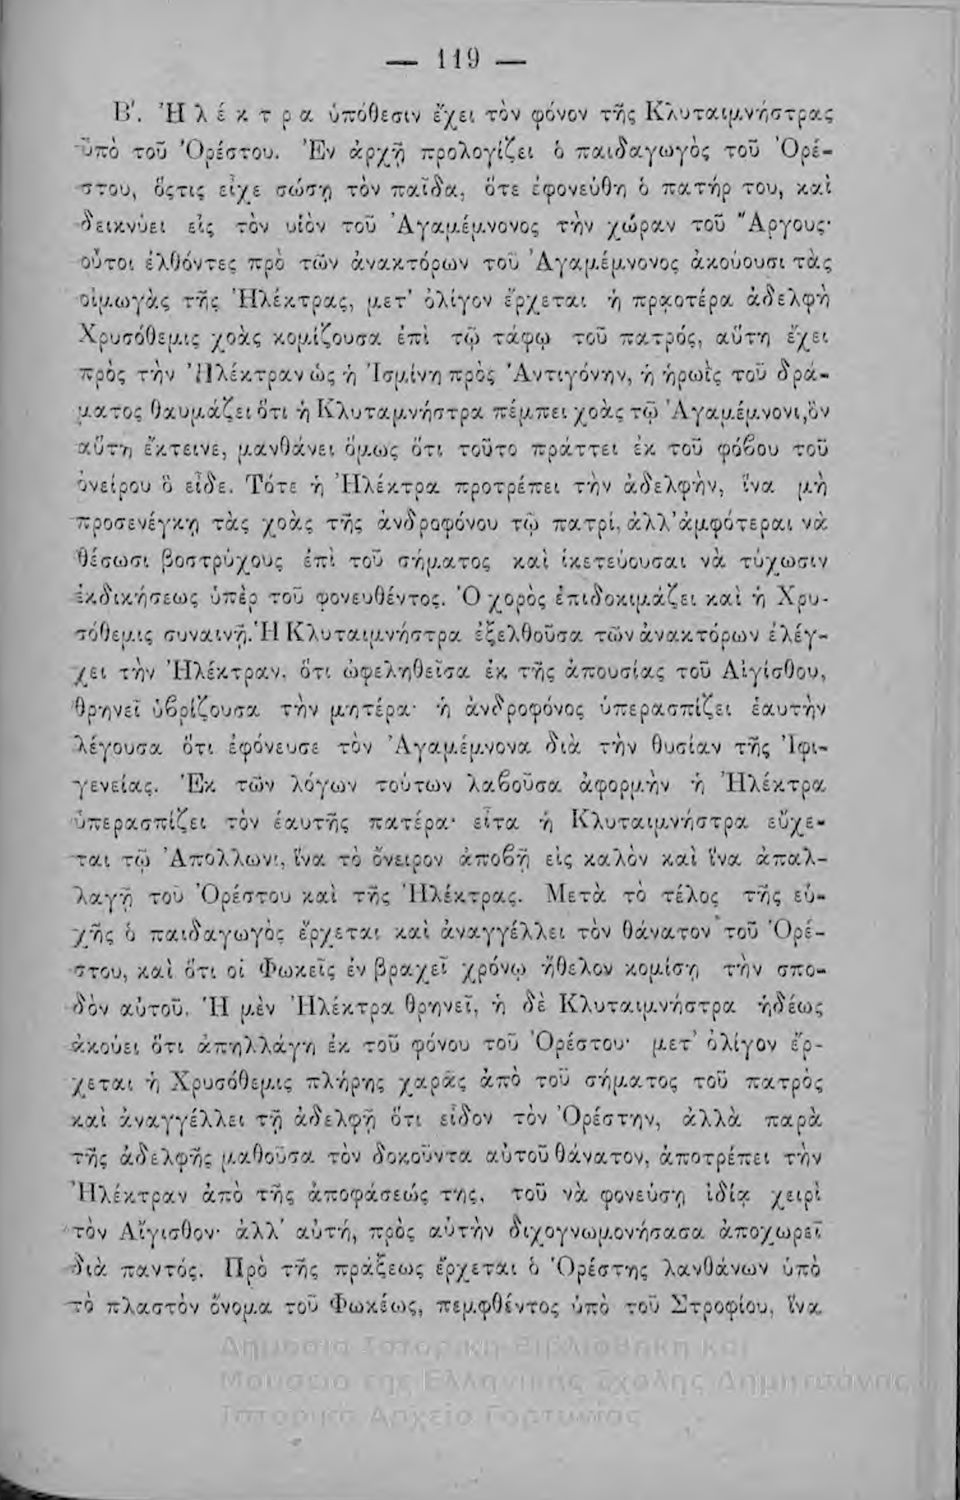 — 119 —
Β'. Ἠλέκτρα ὑπόθεσιν ἔχει τὸν φόνον τῆς Κλυταιμνήστρας
ὑπὸ τοῦ Ὀρέστου. Ἐν ἀρχῇ προλογίζει ὁ παιδαγωγὸς τοῦ Ὀρέ-
στου, ὅςτις εἶχε σώσῃ τὸν παῖδα, ὅτε ἐφονεύθη ὁ πατήρ του, καὶ
δεικνύει εἰς τὸν υἱὸν τοῦ Ἀγαμέμνονος τὴν χώραν τοῦ Ἄργους·
οὗτοι ἐλθόντες πρὸ τῶν ἀνακτόρων τοῦ Ἀγαμέμνονος ἀκούουσι τὰς
οἰμωγὰς τῆς Ἠλέκτρας, μετ' ὀλίγον ἔρχεται ἡ πρᾳοτέρα ἀδελφὴ
Χρυσόθεμις χοὰς κομίζουσα ἐπὶ τῷ τάφῳ τοῦ πατρός, αὕτη ἔχει
πρὸς τὴν Ἠλέκτραν ὡς ἡ Ἰσμίνη πρὸς Ἀντιγόνην, ἡ ἡρωῒς τοῦ δρά-
ματος θαυμάζει ὅτι ἡ Κλυταμνήστρα πέμπει χοὰς τῷ Ἀγαμέμνονι, ὃν
αὕτη ἔκτεινε, μανθάνει ὅμως ὅτι τοῦτο πράττει ἐκ τοῦ φόβου τοῦ
ὀνείρου ὃ εἶδε. Τότε ἡ Ἠλέκτρα προτρέπει τὴν ἀδελφήν, ἵνα μὴ
προσενέγκῃ τὰς χοὰς τῆς ἀνδροφόνου τῷ πατρί, ἀλλ' ἀμφότεραι νὰ
θέσωσι βοστρύχους ἐπὶ τοῦ σήματος καὶ ἱκετεύουσαι νὰ τύχωσιν
ἐκδικήσεως ὑπὲρ τοῦ φονευθέντος. Ὁ χορὸς ἐπιδοκιμάζει καὶ ἡ Χρυ-
σόθεμις συναινῇ. Ἡ Κλυταιμνήστρα ἐξελθοῦσα τῶν ἀνακτόρων ἐλέγ-
χει τὴν Ἠλέκτραν, ὅτι ὠφεληθεῖσα ἐκ τῆς ἀπουσίας τοῦ Αἰγίσθου,
θρηνεῖ ὑβρίζουσα τὴν μητέρα· ἡ ἀνδροφόνος ὑπερασπίζει ἑαυτὴν
λέγουσα ὅτι ἐφόνευσε τὸν Ἀγαμέμνονα διὰ τὴν θυσίαν τῆς Ἰφι-
γενείας. Ἐκ τῶν λόγων τούτων λαβοῦσα ἀφορμὴν ἡ Ἠλέκτρα
ὑπερασπίζει τὸν ἑαυτῆς πατέρα· εἶτα ἡ Κλυταιμνήστρα εὔχε-
ται τῷ Ἀπολλωνι, ἵνα τὸ ὄνειρον ἀποβῇ εἰς καλὸν καὶ ἵνα ἀπαλ-
λαγῇ τοῦ Ὀρέστου καὶ τῆς Ἠλέκτρας. Μετὰ τὸ τέλος τῆς εὐ-
χῆς ὁ παιδαγωγὸς ἔρχεται καὶ ἀναγγέλλει τὸν θάνατον τοῦ Ὀρέ-
στου, καὶ ὅτι οἱ Φωκεῖς ἐν βραχεῖ χρόνῳ ἤθελον κομίσῃ τὴν σπο-
δὸν αὐτοῦ. Ἡ μὲν Ἠλέκτρα θρηνεῖ, ἡ δὲ Κλυταιμνήστρα ἡδέως
ἀκούει ὅτι ἀπηλλάγη ἐκ τοῦ φόνου τοῦ Ὀρέστου· μετ' ὀλίγον ἔρ-
χεται ἡ Χρυσόθεμις πλήρης χαρᾶς ἀπὸ τοῦ σήματος τοῦ πατρὸς
καὶ ἀναγγέλλει τῇ ἀδελφῇ ὅτι εἶδον τὸν Ὀρέστην, ἀλλὰ παρὰ
τῆς ἀδελφῆς μαθοῦσα τὸν δοκοῦντα αὐτοῦ θάνατον, ἀποτρέπει τὴν
Ἠλέκτραν ἀπὸ τῆς ἀποφάσεώς της, τοῦ νὰ φονεύσῃ ἰδίᾳ χειρὶ
τὸν Αἴγισθον· ἀλλ' αὐτή, πρὸς αὐτὴν διχογνωμονήσασα ἀποχωρεῖ
διὰ παντός. Πρὸ τῆς πράξεως ἔρχεται ὁ Ὀρέστης λανθάνων ὑπὸ
τὸ πλαστὸν ὄνομα τοῦ Φωκέως, πεμφθέντος ὑπὸ τοῦ Στροφίου, ἵνα
Δημόσια Ιστορική Βιβλιοθήκη και
Μουσείο της Ελληνικής Σχολής Δημητσάνας
Ιστορικό Αρχείο Γορτυνίας